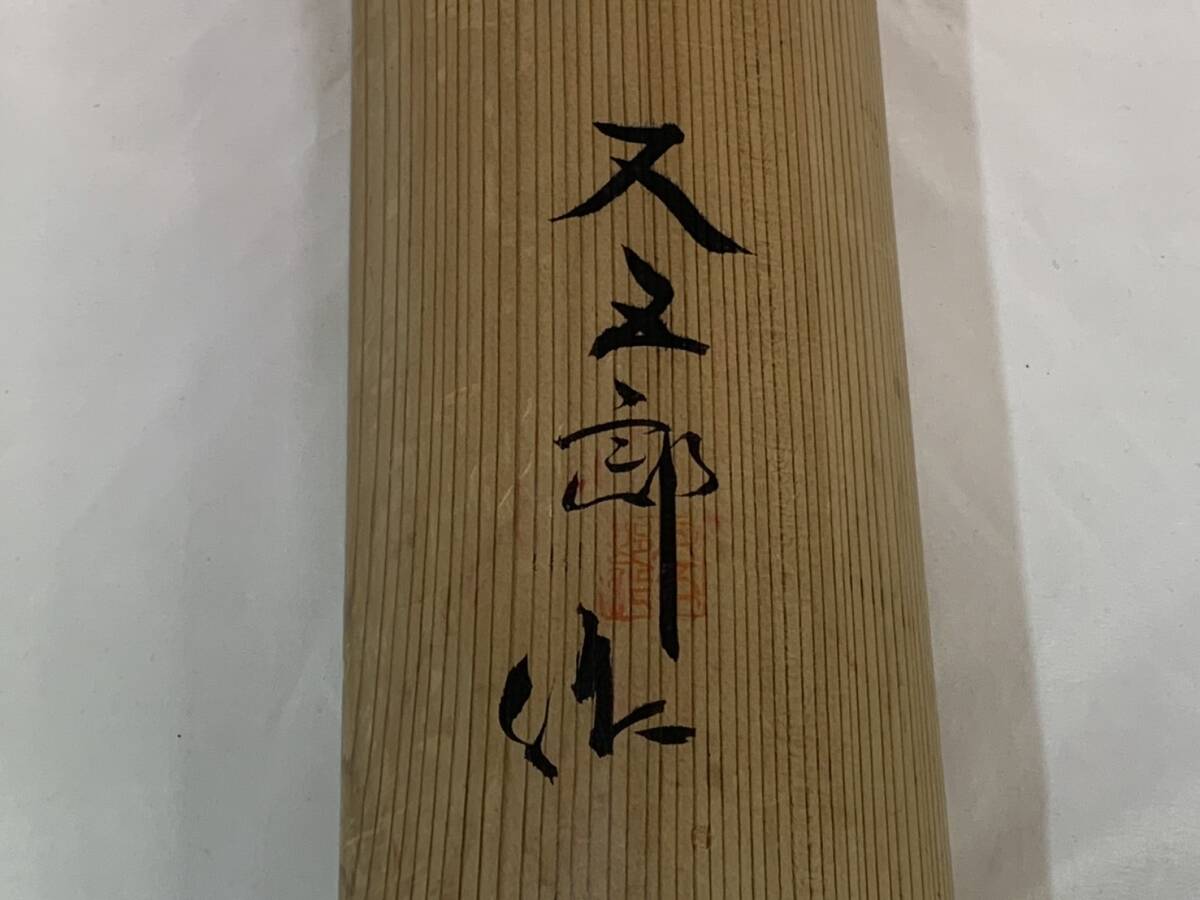 又五郎作